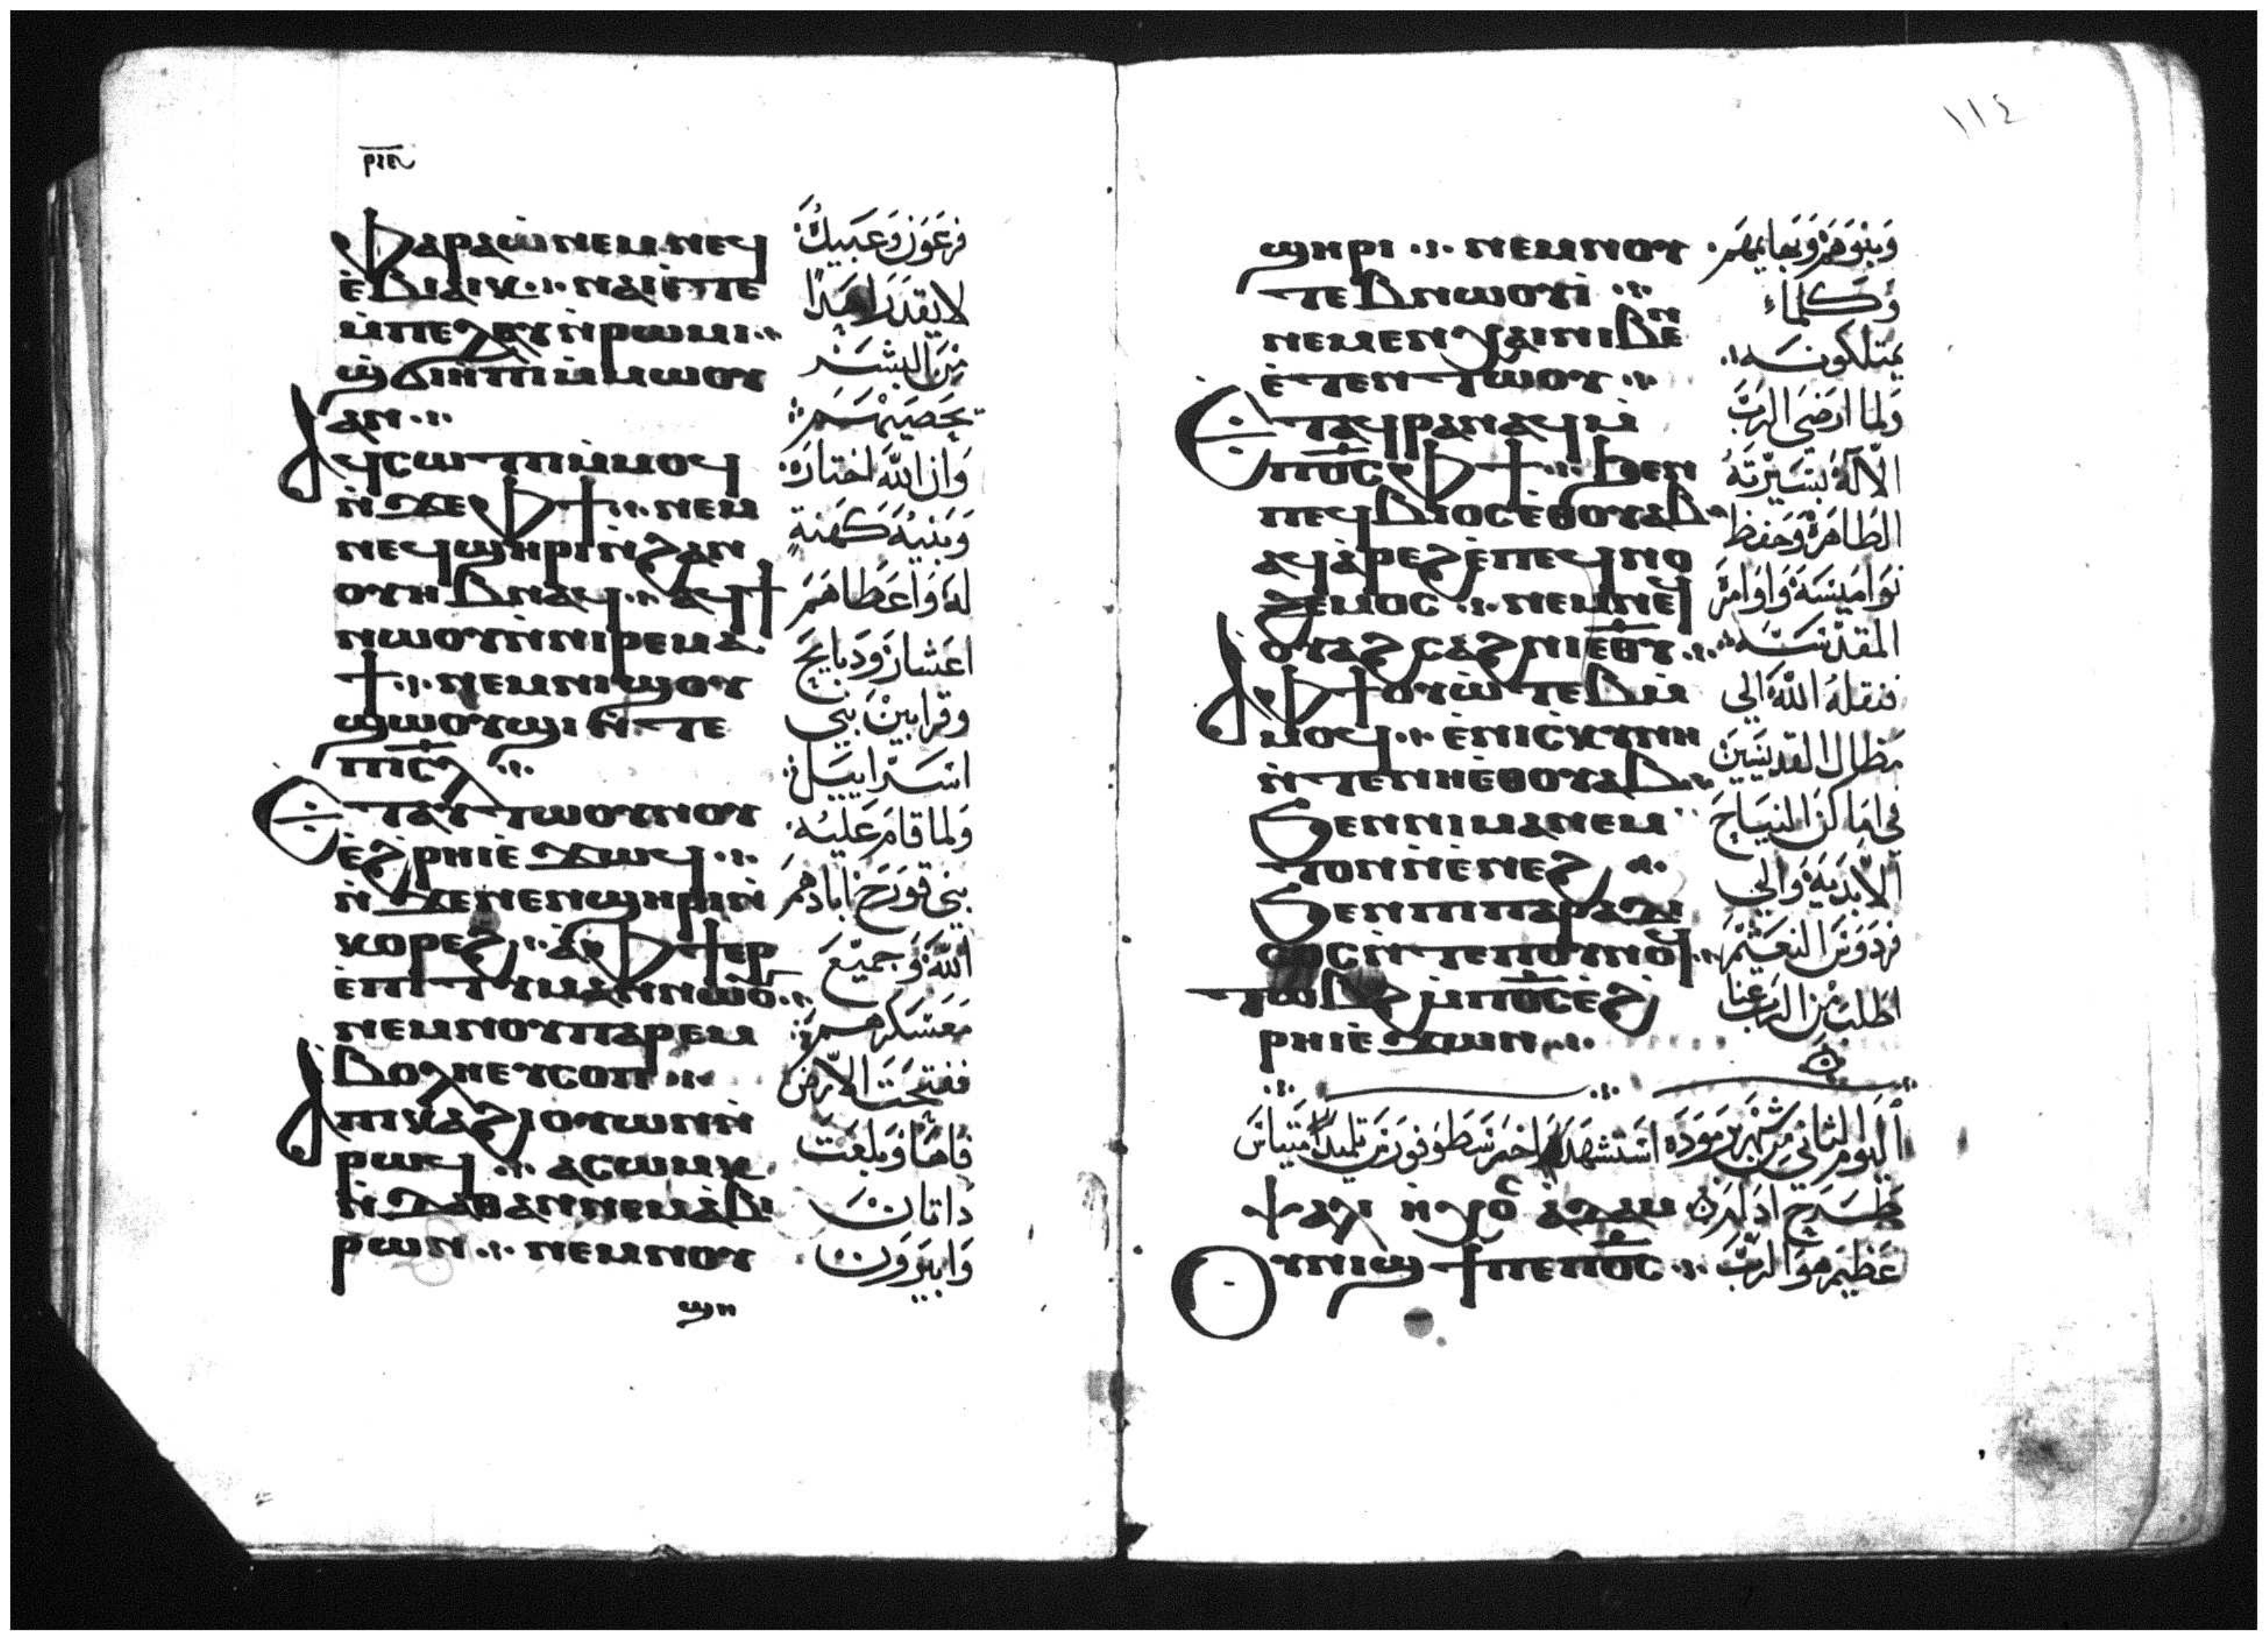 ⲣⲓⲅ
Ⲫⲁⲣⲁⲱ ⲛⲉⲙ ⲛⲉϥ
ⲉ̀ⲃⲓⲁⲓⲕ ⲛⲁⲓ ⲉ̀ⲧⲉ
ⲙ̀ⲡⲉ ϩⲗⲓ ⲛ̀ⲣⲱⲙⲓ
ϣ̀ϭⲓⲏⲡⲓ ⲙ̀ⲙⲱⲟⲩ
ⲁⲛ
Ⲁϥⲥⲱⲧⲡ ⲙ̀ⲙⲟϥ
ⲛ̀ϫⲉ ⲫϯ ⲛⲉⲙ
ⲛⲉϥϣⲏⲣⲓ ⲛ̀ϩⲁⲛ
ⲟⲩⲏⲃ ⲛⲁϥ ⲁϥϯ
ⲛⲱⲟⲩ ⲛ̀ⲛⲓⲣⲉⲙⲁ
ϯ ⲛⲉⲙ ⲛⲓϣⲟⲩ
ϣⲱⲟⲩϣⲓ ⲛ̀ⲧⲉ
ⲡⲓⲥⲗ
Ⲉⲧⲁⲩⲧⲱⲟⲩⲛⲟⲩ
ⲉ̀ϩⲣⲏⲓ ⲉ̀ϫⲱϥ
ⲛ̀ϫⲉ ⲛⲉⲛϣⲏⲣⲓ ⲛ̀
ⲕⲟⲣⲉϩ ⲁ̀ ⲫϯ ⲉⲣ
ⲉ̀ⲡⲓⲧⲓⲙⲁⲛ ⲛⲱⲟ
ⲛⲉⲙ ⲛⲟⲩⲡⲁⲣⲉⲙ
ⲃⲟⲗⲏ ⲉⲩⲥⲟⲡ
Ⲁ ⲡⲓⲕⲁϩⲓ ⲟⲩⲱⲛ ⲛ̀
ⲣⲱϥ ⲁⲥⲱⲙⲕ
ⲛ̀ⲇⲁⲑⲁⲛ ⲛⲉⲙ ⲁ̀ⲃⲓ
ⲣⲱⲛ ⲛⲉⲙ ⲛⲟⲩ
ϣⲏ
فرعون وعبيده
لا يقدر احدا
من البشر
يحصيهم
وان الله اختاره
وبنيه كهنة
له واعطاهم
اعشار ودبايح
وقرابين بني
اسراييل
ولما قام عليه
بني قورح ابادهم
الله وجميع
معسكرهم
ففتحت الارض
فاها وبلعت
داتان
وابيرون
١١٤
ϣⲏⲣⲓ ⲛⲉⲙ ⲛⲟⲩ
ⲧⲉⲃⲛⲱⲟⲩⲓ̀
ⲛⲉⲙ ⲉⲛⲭⲁⲓ ⲛⲓⲃⲉⲛ
ⲉ̀ⲧⲉⲛⲧⲱⲟⲩ
Ⲉⲧⲁϥⲣⲁⲛⲁϥ ⲙ̀
ⲡⲟ̅ⲥ̅ ⲫϯ ϧⲉⲛ
ⲡⲉϥⲃⲓⲟⲥ ⲉ̀ⲑⲟⲩⲁⲃ
ⲁϥⲁ̀ⲣⲉϩ ⲉ̀ⲡⲉϥⲛⲟ
ϩⲉⲙⲟⲥ ⲛⲉⲙ ⲛⲉϥ
ⲟⲩⲁϩⲥⲁϩⲛⲓ ⲉ̅ⲑ̅ⲩ̅
Ⲁ ⲫϯ ⲟⲩⲱ̀ⲧⲉⲃ ⲙ̀
ⲙⲟϥ ⲉ̀ⲛⲓⲥ̀ⲕⲩⲛⲏ
ⲛ̀ⲧⲉ ⲛⲏⲉ̀ⲑⲟⲩⲁⲃ
Ϧⲉⲛ ⲛⲓⲙⲁⲛⲉⲙ
ⲧⲟⲛ ⲛ̀ⲉ̀ⲛⲉϩ
Ϧⲉⲛ ⲡⲓⲡⲁⲣⲁⲇⲓ
ⲥⲟⲥ ⲛ̀ⲧⲉ ⲡⲟⲩⲛⲟϥ
Ⲧⲱⲃϩ ⲙ̀ⲡⲟ̅ⲥ̅ ⲉ̀ϩ
ⲣⲏⲓ ⲉ̀ϫⲱⲛ
وبنوهم وبهايمهم
وكلما
يمتلكونه
ولما ارضي الرب
الاله بسيرته
الطاهرة وحفظ
نواميسه واوامره
المقدسه
فنقله الله الي
مظال القديسين
في اماكن النياح
الابدية والي
فردوس النعيم
اطلب من الرب عنا
اليوم الثاني من شهر برموده استشهد اخرسطوفورس تلميد متياس
ⲯⲁⲗⲓ ⲛ̀ⲭⲟ ⲁⲇⲁⲙ طرح ادام
Ⲟⲩⲛⲓϣϯ ⲡⲉ ⲡⲟ̅ⲥ̅ عظيم هو الرب